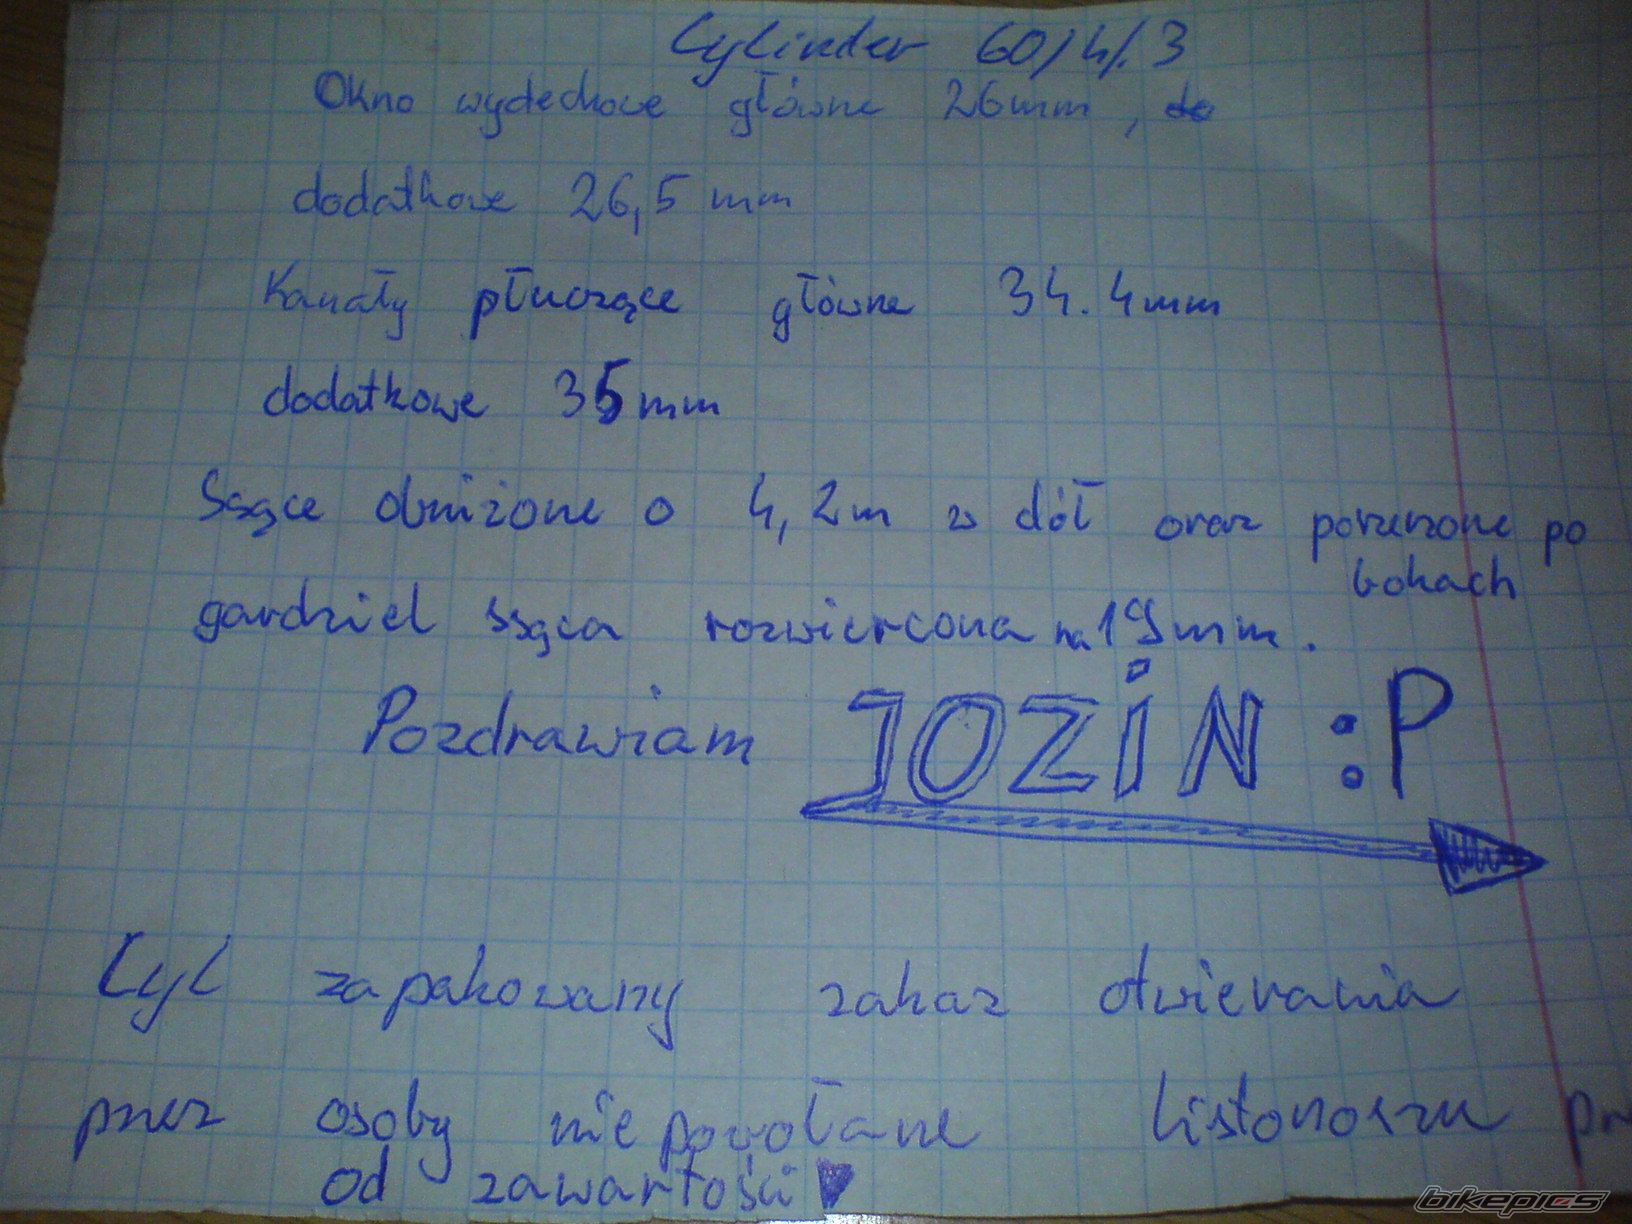 Cylinder 60/4/.3
Okno wydechowe główne 26mm, do
dodatkowe 26,5 mm
Kanały płuczące główne 34.4mm
dodatkowe 35mm
Ssące obniżone o 4,2m w dół oraz poruszone po
bokach
gardziel ssąca rozwiercona na 19mm.
Pozdrawiam JOZiN :P
Cyl zapakowany zakaz otwierania
przez osoby nie powołane listonoszu
od zawartości
bikepics